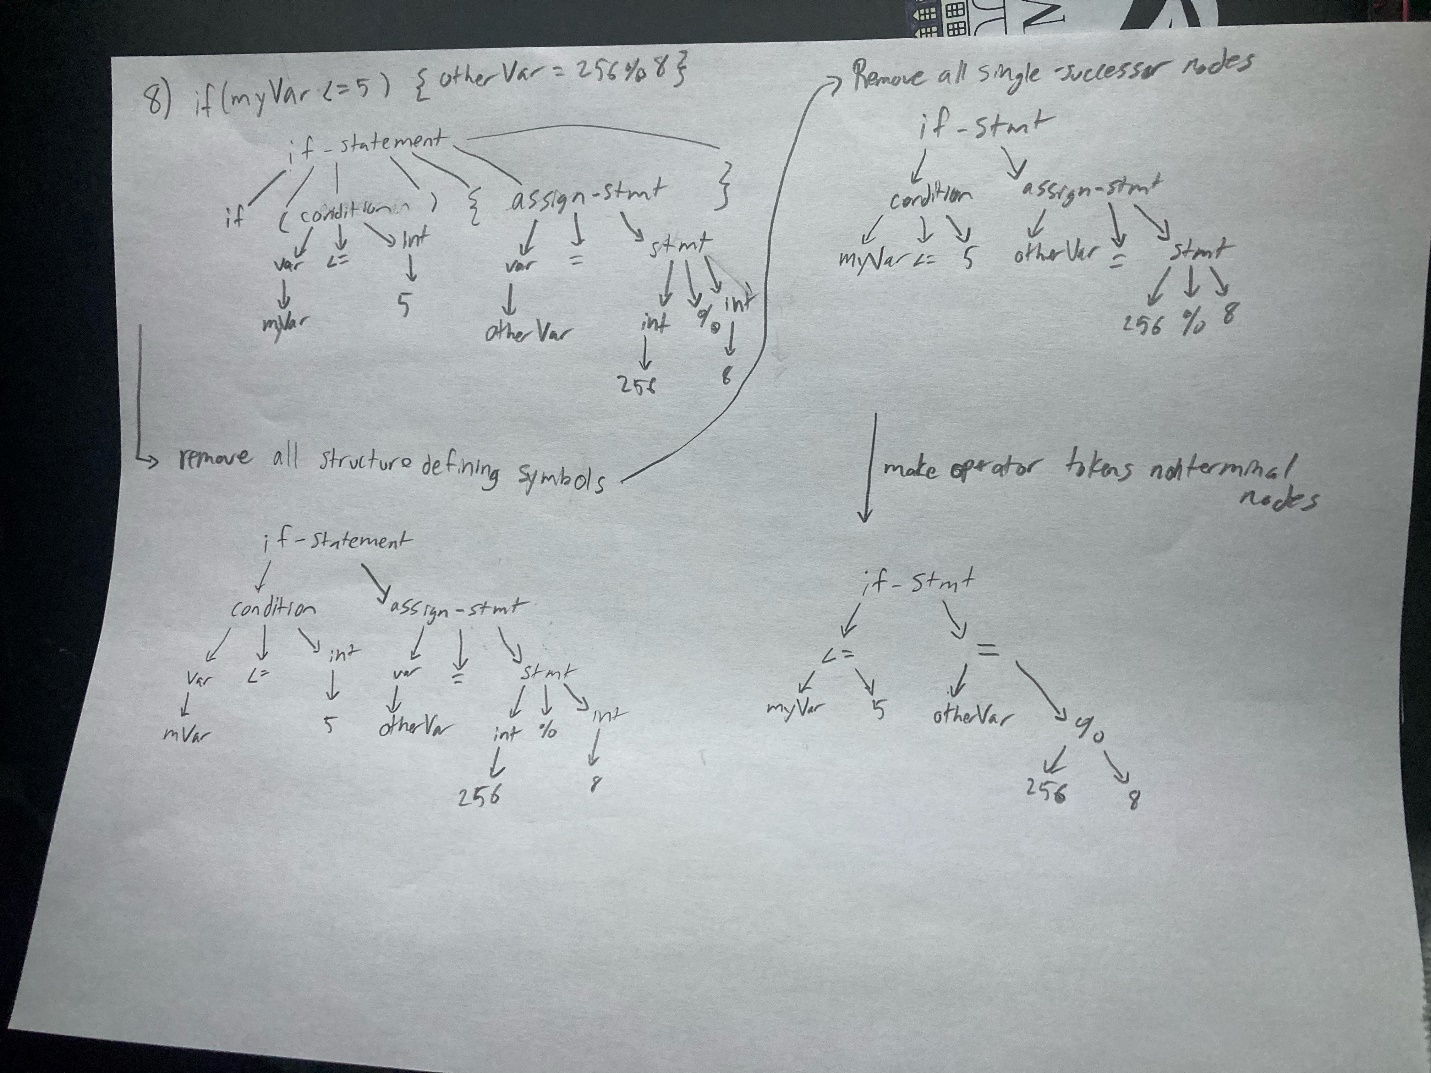 8) if(myVar <=5) { otherVar = 256%8}
if-statement
if ( condition ) { assign-stmt }
var <= int
var = stmt
myVar 5
otherVar int % int
256 8
remove all structure defining symbols
if-statement
condition assign-stmt
var <= int var = stmt
mVar 5 otherVar int % int
256 8
Remove all single-successor nodes
if-stmt
condition assign-stmt
myVar <= 5 otherVar = stmt
256 % 8
make operator tokens nonterminal
nodes
if-stmt
<= =
myVar 5 otherVar %
256 8